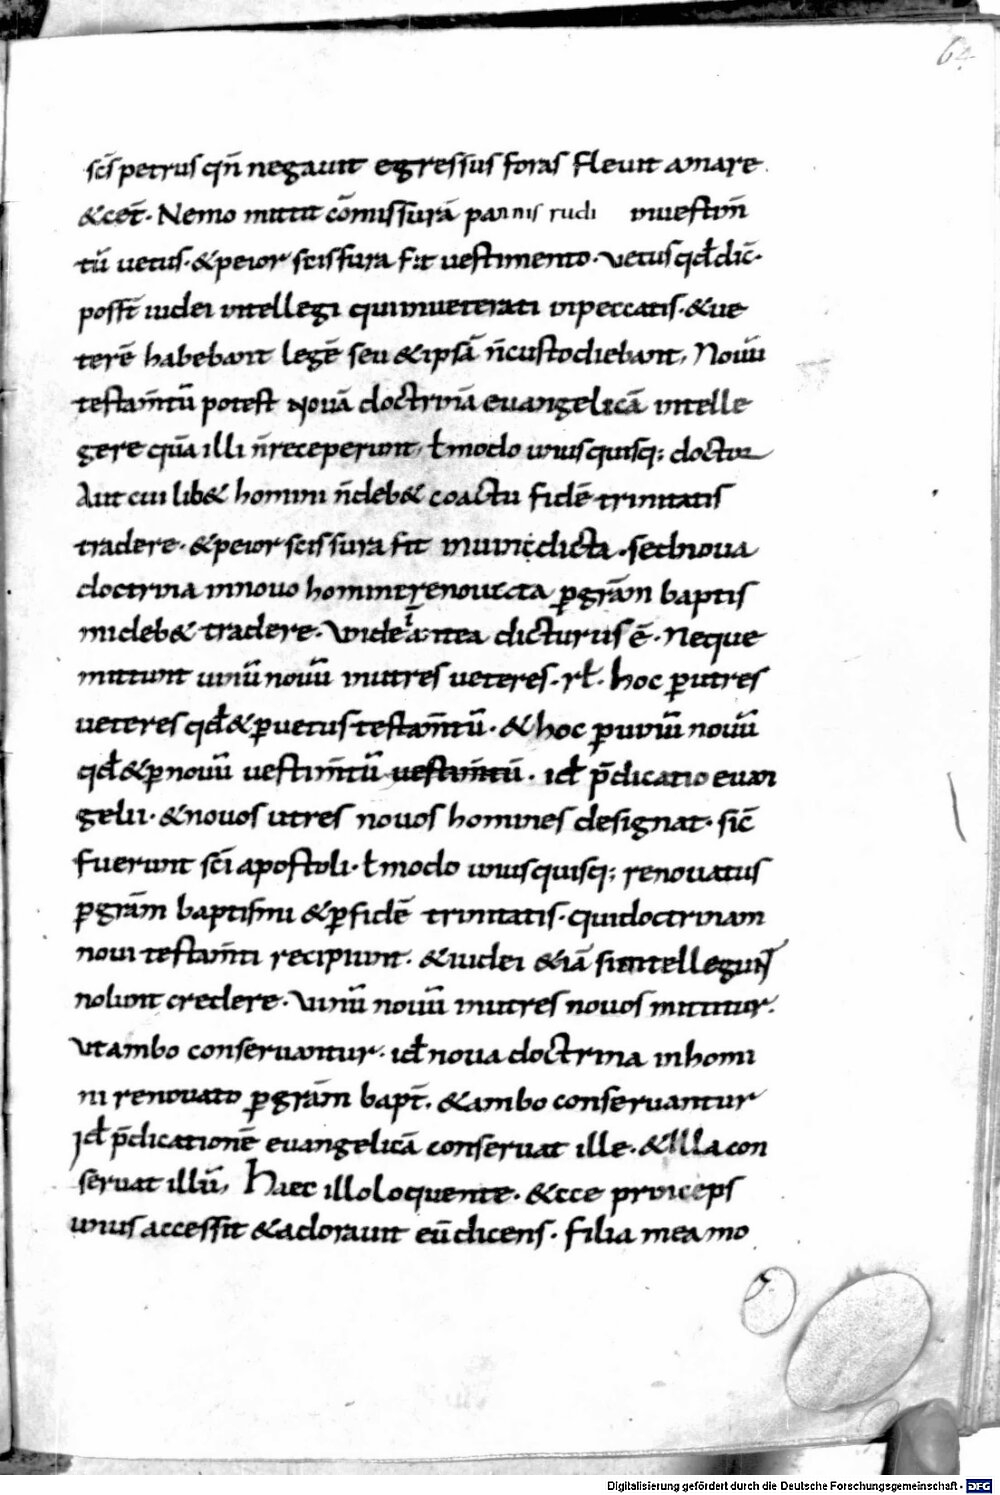 64
scs̄ petrus qn̄ negauit egressus foras fleuit amare.
&cet̄. Nemo mittit cōmissurā pannis rudi inuestim̄
tū uetus. &peior scissura fit uestimento. vetus qd̄ dic̄.
possī iudei intellegi quiinueterati inpeccatis. &ue
terē habebant legē seu &ipsā n̄custodiebant, Nouū
testam̄tū potest nouā doctrinā euangelicā intelle
gere quā illi n̄receperunt, ł modo unusquisq; doctor
Aut cui lib& homini n̄deb& coactu fidē trinitatis
tradere. &peior scissura fit inuindicta. sednoua
doctrina innouo homine renouata p̱ grām baptis
mi deb& tradere. Vnde i antea dicturus ē. Neque
mittunt uinū nouū inutres ueteres. rł. hoc p̱ utres
ueteres qd̄ &p̱ uetus testam̄tū. &hoc p̱ uinū nouū
qd̄ &p̱ nouū uestim̄tū uestim̄tū. id̄ p̄dicatio euan
gelii. &nouos utres nouos homines designat. sic̄
fuerunt sc̄i apostoli. ł modo unusquisq; renouatus
p̱ grām baptismi &p̱ fidē trinitatis. quidoctrinam
noui testam̄ti recipiunt. &iudei &iā siintellegunt
nolunt credere. Vinū nouū inutres nouos mittitur.
Vt ambo conseruantur. id̄ noua doctrina inhomi
ni renouato p̱ grām bapt̄. &ambo conseruantur
Id̄ p̄dicationē euangelicā conseruat ille. &illa con
seruat illū, Haec illoloquente. &cce princeps
unus accessit &adorauit eū dicens. filia mea mo
Digitalisierung gefördert durch die Deutsche Forschungsgemeinschaft - DFG